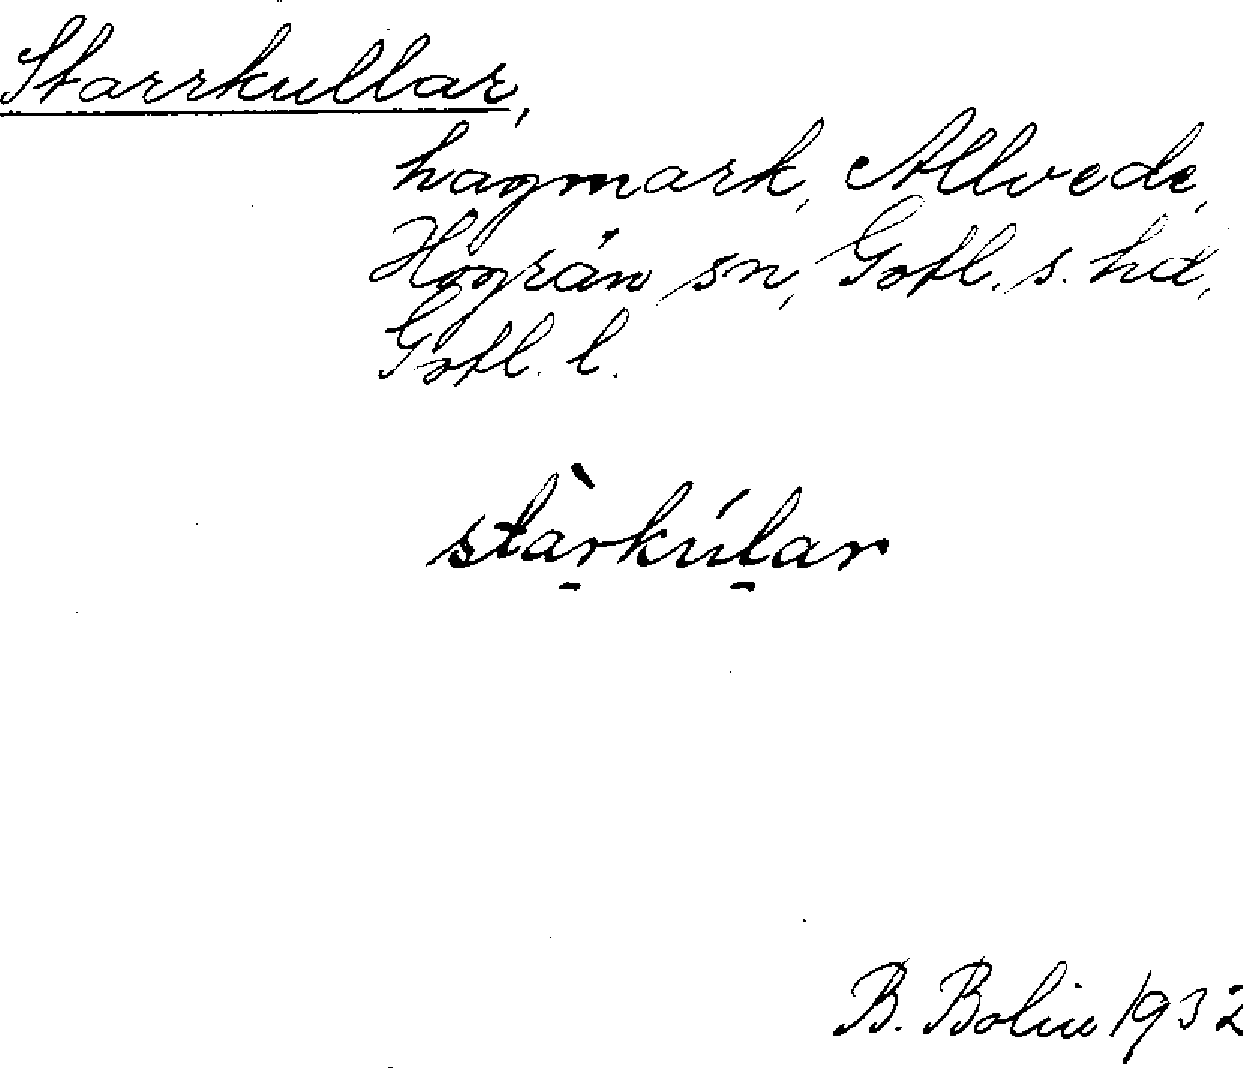 Starrkullar,
hagmark, Allvede,
Hogrän sn, Gotl. s. hd,
Gotl. l.
stàr̠kúl̠ar
B. Bolin 1932